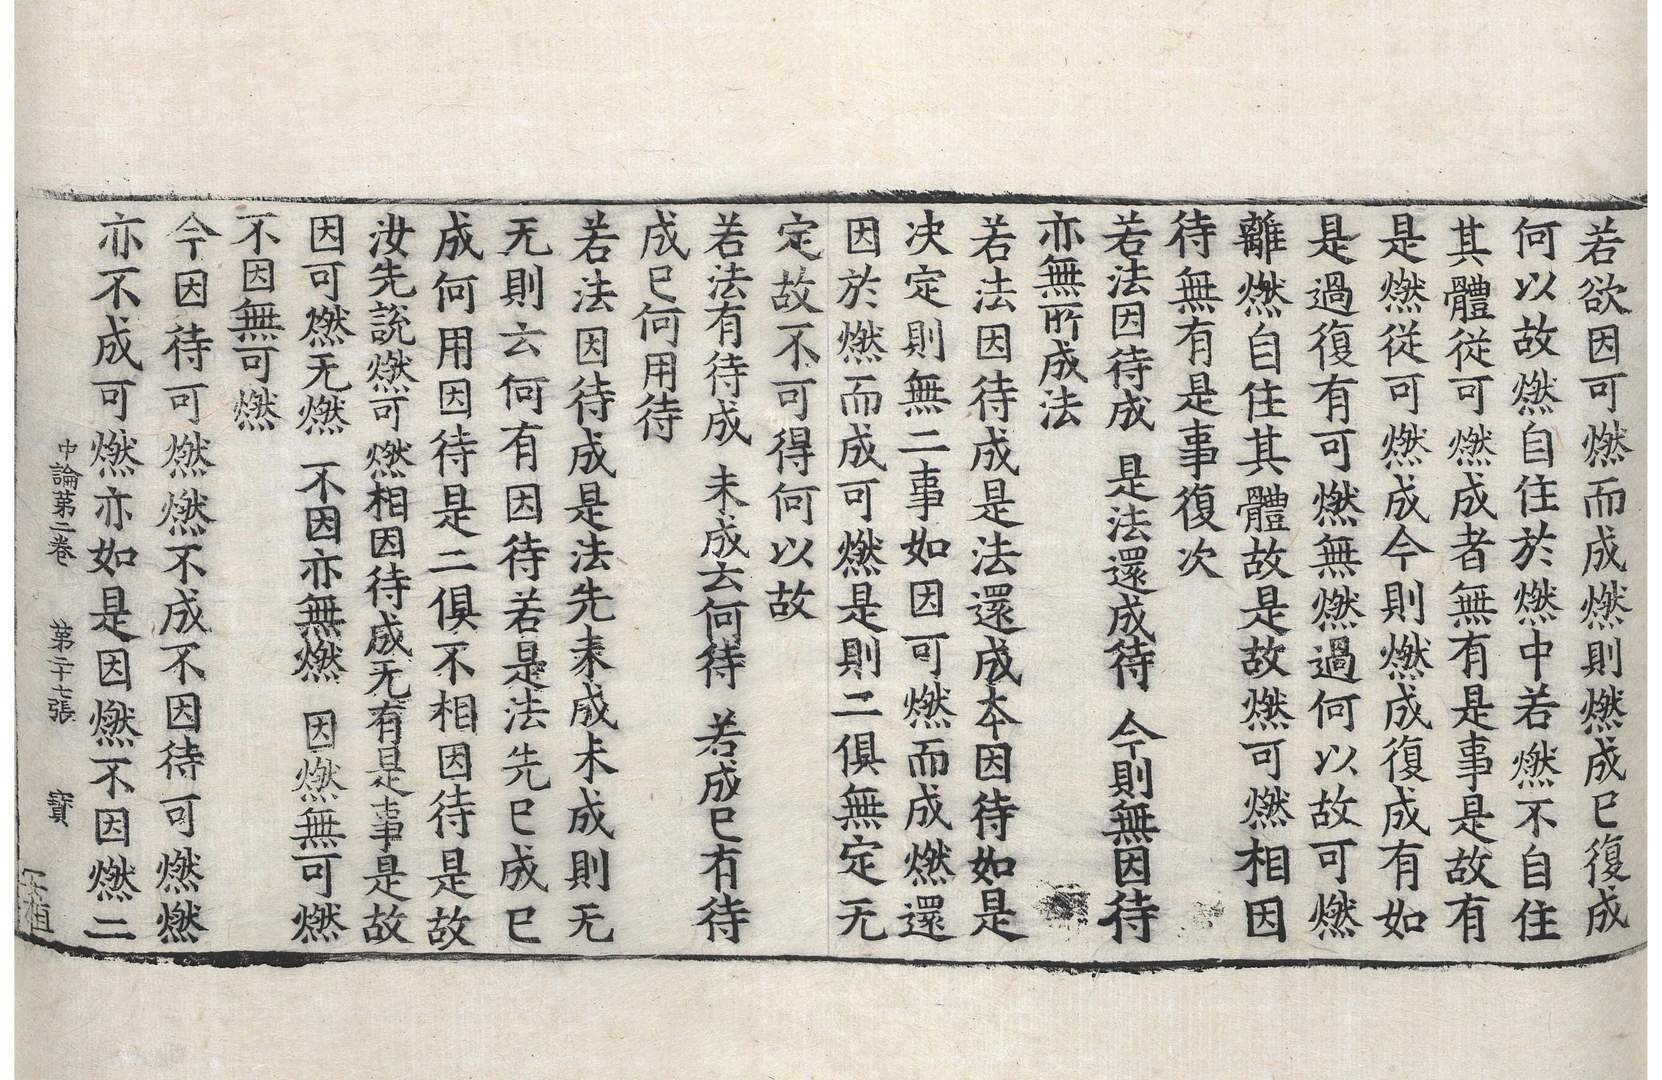 若欲因可燃而成燃則燃成已復成
何以故燃自住於燃中若燃不自住
其體從可燃成者無有是事是故有
是燃從可燃成今則燃成復成有如
是過復有可燃無燃過何以故可燃
離燃自住其體故是故燃可燃相因
待無有是事復次
若法因待成 是法還成待 今則無因待
亦無所成法
若法因待成是法還成本因待如是
决定則無二事如因可燃而成燃還
因於燃而成可燃是則二俱無定无
定故不可得何以故
若法有待成 未成云何待 若成已有待
成已何用待
若法因待成是法先未成未成則无
无則云何有因待若是法先已成已
成何用因待是二俱不相因待是故
汝先說燃可燃相因待成无有是事是故
因可燃无燃 不因亦無燃 因燃無可燃
不因無可燃
今因待可燃燃不成不因待可燃燃
亦不成可燃亦如是因燃不因燃二
中論第二卷 第二十七張 寶